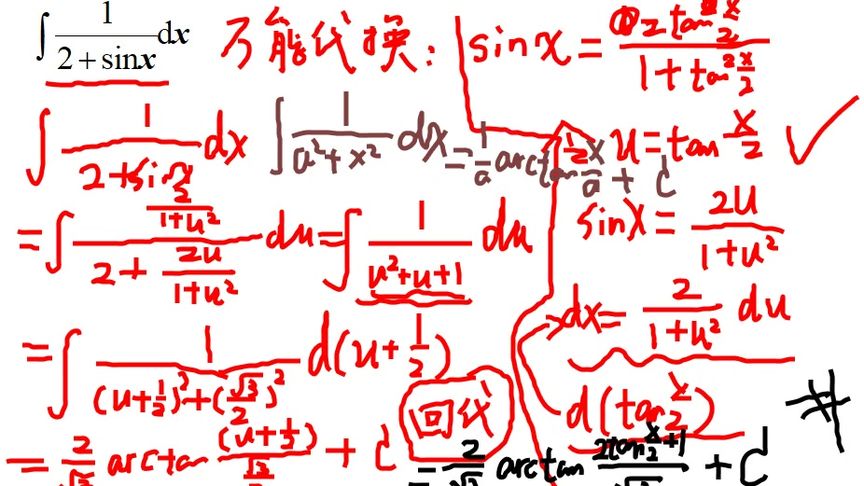 ∫ 1/(2+sinx) dx 万能代换: sinx = 2tan x/2 / (1+tan² x/2)
∫ 1/(2+sinx) dx
∫ 1/(a²+x²) dx = 1/a arctan x/a + C
u = tan x/2 ✓
sinx = 2u/(1+u²)
= ∫ (2/(1+u²))/(2+2u/(1+u²)) du = ∫ 1/(u²+u+1) du
dx = 2/(1+u²) du
= ∫ 1/((u+1/2)²+(√3/2)²) d(u+1/2)
d(tan x/2)
回代
= 2/√3 arctan (u+1/2)/(√3/2) + C
= 2/√3 arctan (2tan x/2 +1)/√3 + C